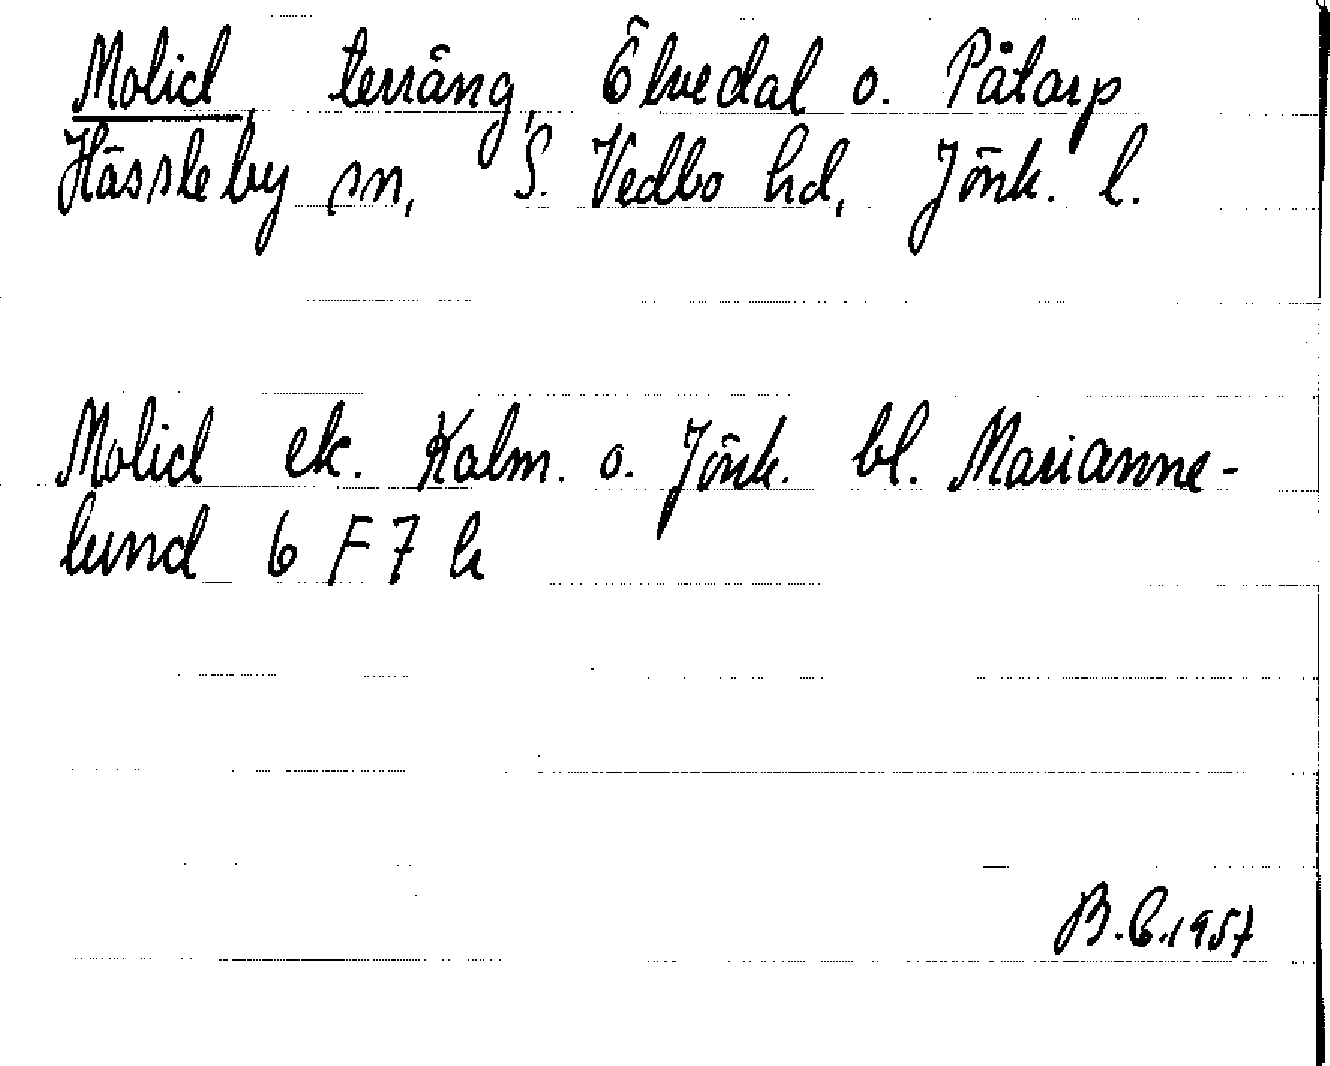 Molid, terräng, Ölvedal o. Påtarp
Hässleby sn, S. Vedbo hd, Jönk. l.
Molid ek. Kalm. o. Jönk. bl. Marianne-
lund 6 F 7 h
B.C.1957